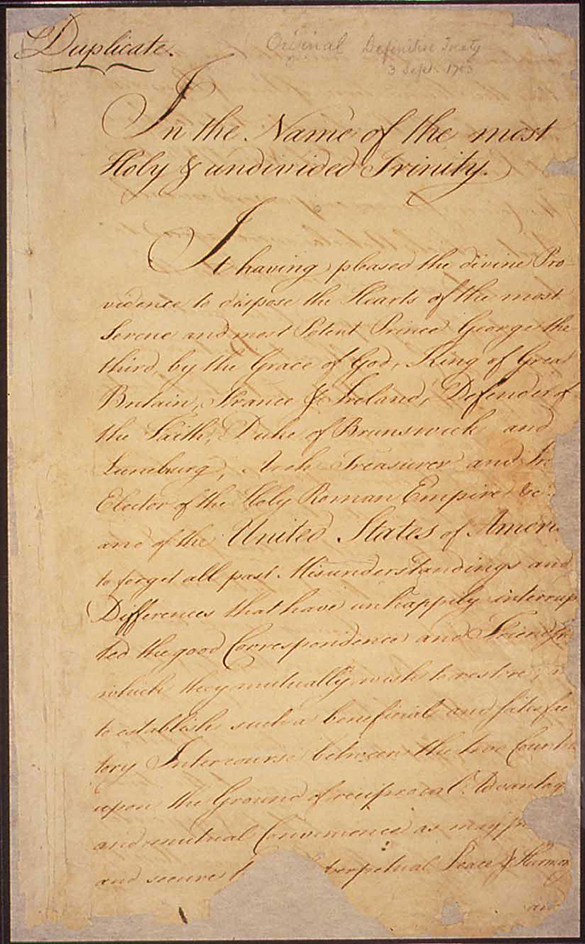 Duplicate.
Original Definitive Treaty
3 Sept. 1783
In the Name of the most
Holy & undivided Trinity.
It having pleased the divine Pro
vidence to dispose the Hearts of the most
Serene and most Potent Prince George the
third, by the Grace of God, King of Great
Britain, France & Ireland, Defender of
the Faith, Duke of Brunswick and
Luneburg, Arch Treasurer and
Elector of the Holy Roman Empire &c.
and of the United States of Ameri
to forget all past Misunderstandings and
Differences that have unhappily interrup
ted the good Correspondence and Friendsh
which they mutually wish to restore;
to establish such a beneficial and satisfac
tory Intercourse between the two Count
upon the Ground of reciprocal Advantag
and mutual Convenience as may
and secure perpetual Peace & Harmon
an